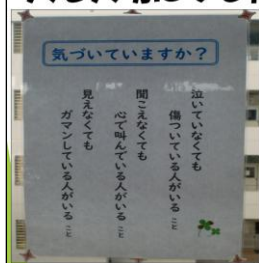 気づいていますか？
泣いていなくても
傷ついている人がいる こと
聞こえなくても
心で叫んでいる人がいる こと
見えなくても
ガマンしている人がいる こと